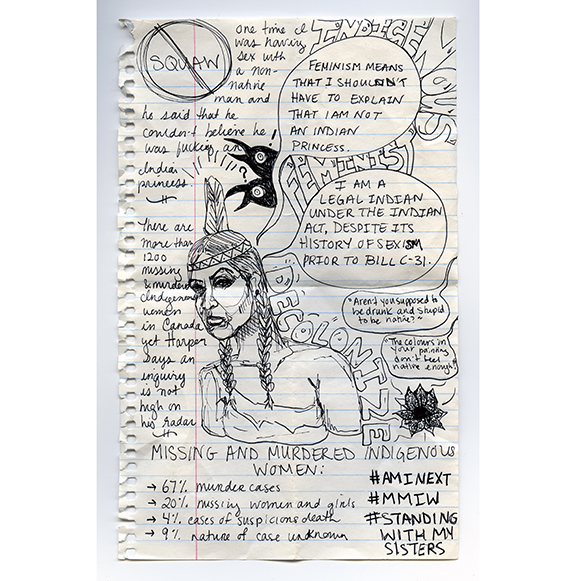 SQUAW
one time I
was having
sex with
a non-
native
man and
he said that he
couldn't believe he
was fucking an
Indian
princess.
!!!!!!?
INDIGENOUS
FEMINIST
FEMINISM MEANS
THAT I SHOULDN'T
HAVE TO EXPLAIN
THAT I AM NOT
AN INDIAN
PRINCESS.
I AM A
LEGAL INDIAN
UNDER THE INDIAN
ACT, DESPITE ITS
HISTORY OF SEXISM
PRIOR TO BILL C-31.
There are
more than
1200
missing
& murdered
Indigenous
women
in Canada
yet Harper
says an
inquiry
is not
high on
his radar
DECOLONIZE
"Aren't you supposed to
be drunk and stupid
to be native?"
"The colours in
your painting
don't feel
native enough"
MISSING AND MURDERED INDIGENOUS
WOMEN:
→ 67% murder cases
→ 20% missing women and girls
→ 4% cases of suspicious death
→ 9% nature of case unknown
#AMINEXT
#MMIW
#STANDING
WITH MY
SISTERS